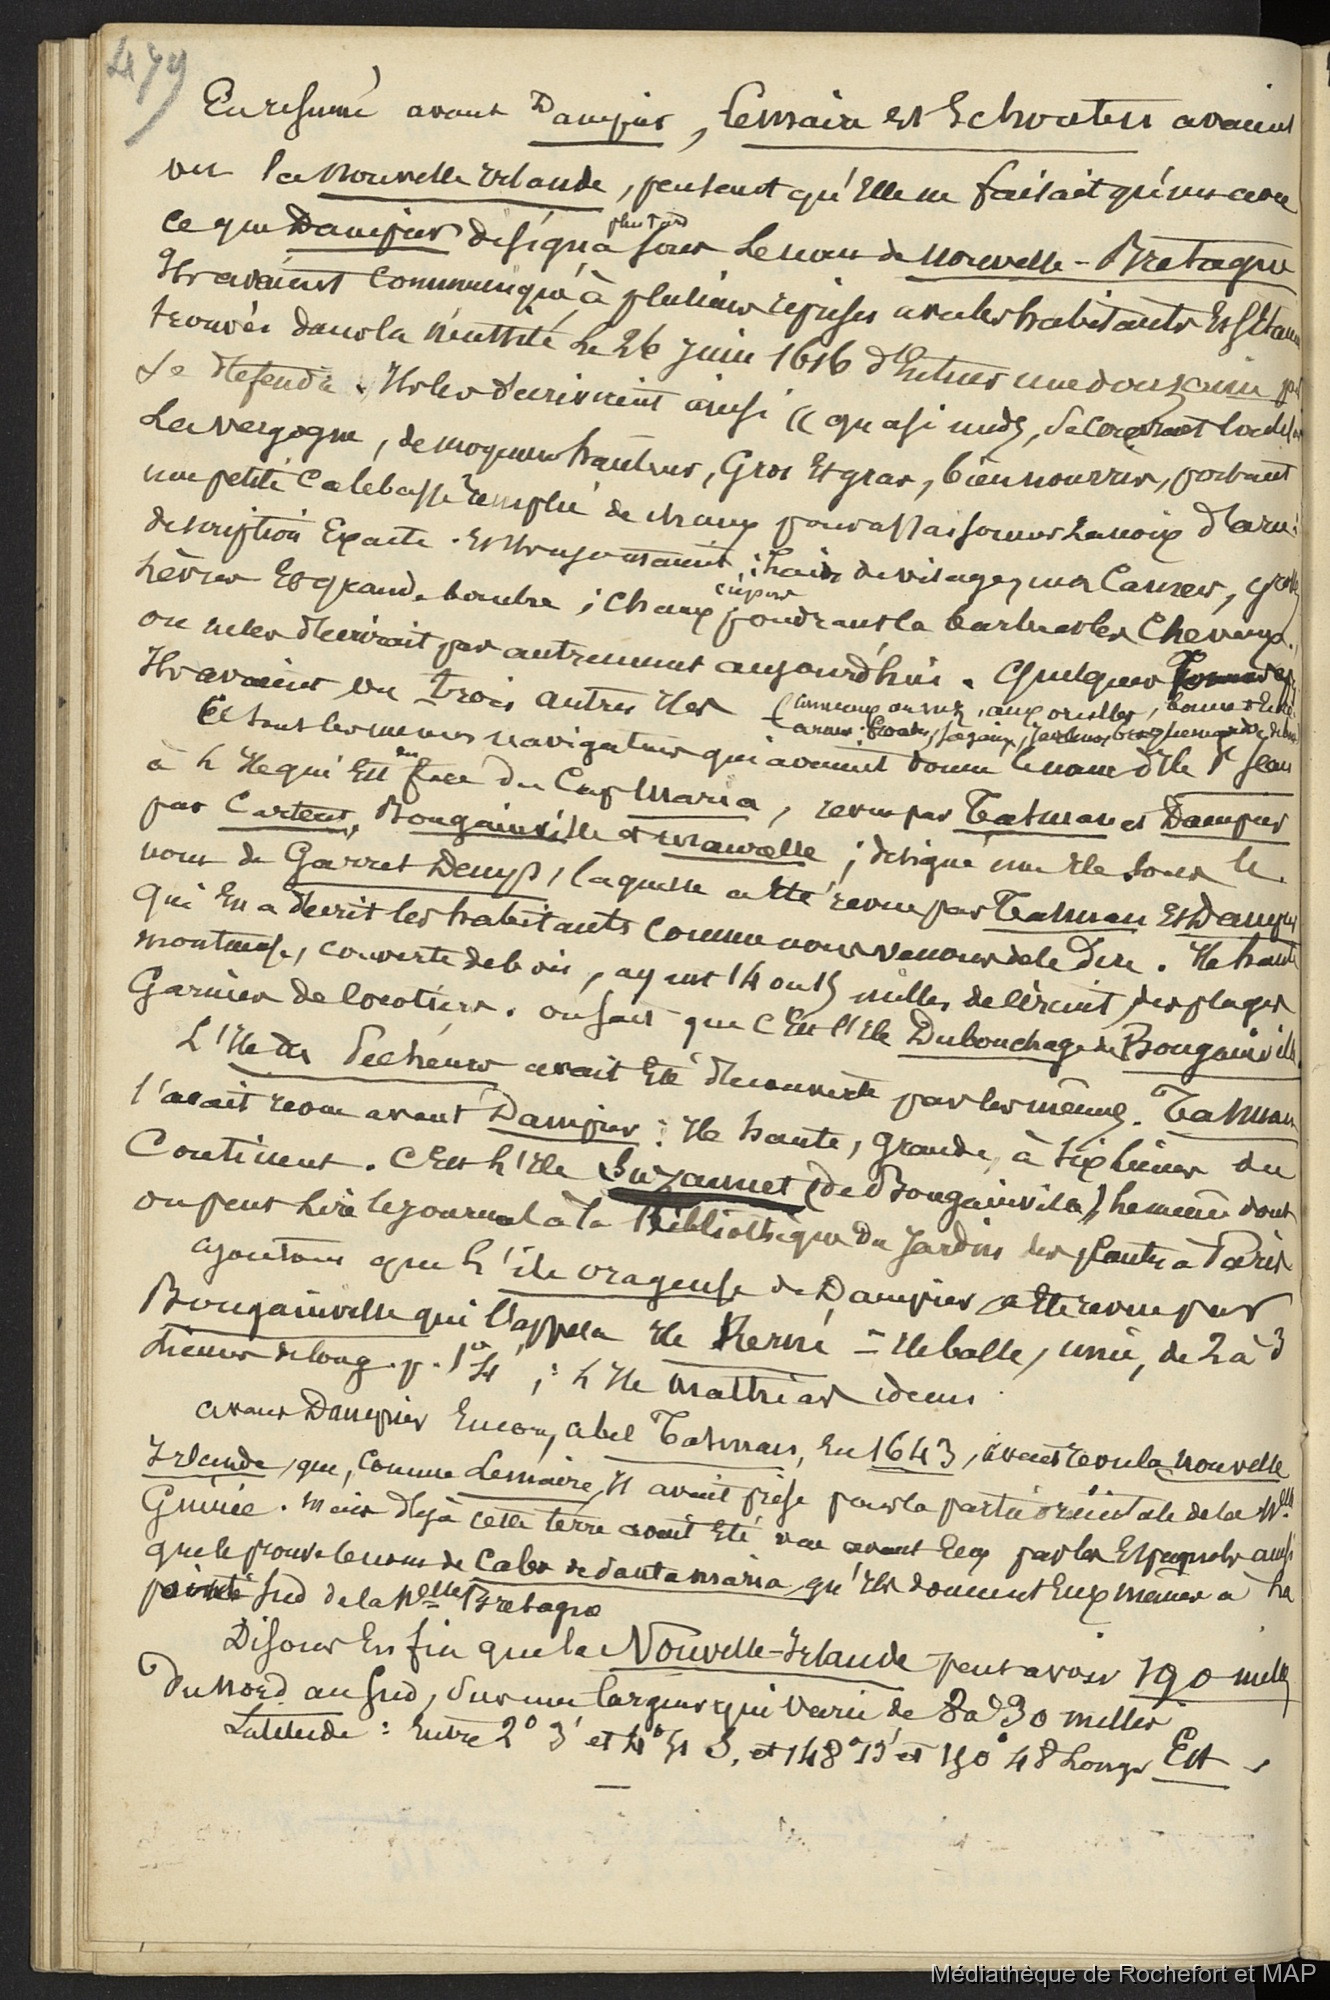 479
En résumé avant Dampier, Lemaire et Schouten avaient
vu la Nouvelle Irlande, pensant qu'elle ne faisait qu'un avec
ce que Dampier désigna plus tard sous le nom de Nouvelle-Bretagne
Ils avaient communiqué à plusieurs reprises avec les habitants et s'étaient
trouvés dans la nécessité le 26 juin 1616 d'en tuer une douzaine pr
se défendre. Ils les décrivirent ainsi « quasi nuds,
la vergogne, de moyenne hauteur, gros et gras, bien nourris, portant
une petite calebasse remplie de chaux pour assaisonner la noix d'arec :
description exacte. Et ils ajoutaient : laids de visages, nez camus, grosses
lèvres et grande bouche ; chaux crépus poudrant la barbe et les cheveux.
on ne les décrirait pas autrement aujourd'hui. Quelques
Ils avaient vu trois autres îles (anneaux au nez, aux oreilles,
armes :
Ce sont les mêmes navigateurs qui avaient donné le nom d'île St Jean
à l'île qui est en face du Cap Maria, revu par Tasman et Dampier
par Carteret, Bougainville et Maurelle ; désigné une île sous le
nom de Garret Denys, laquelle a été revue par Tasman et Dampier
qui en a décrit les habitants comme nous venons de le dire. Ile haute
montueuse, couverte de bois, ayant 14 ou 15 milles de circuit, des plages
garnies de cocotiers. on sait que c'est l'île Dubouchage de Bougainville.
L'île des Pêcheurs avait été découverte par les mêmes. Tasman
l'avait revue avant Dampier : île haute, grande, à six lieues du
Continent. C'est l'île Suzannet (de Bougainville), le même dont
on peut lire le journal à la Bibliothèque du Jardin des plantes à Paris
ajoutons que l'île orageuse de Dampier a été revue par
Bougainville qui l'appela île Kerué = île basse, unie, de 2 à 3
lieues de long. ; : l'île Matthias idem
avant Dampier encore, Abel Tasman, en 1643, avait revu la Nouvelle
Irlande, que, comme Lemaire, il avait prise pour la partie orientale de la Nlle
Guinée. Mais déjà cette terre avait été vue avant eux par les Espagnols ainsi
que le prouve le nom de Cabo de Santa Maria qu'ils donnent eux mêmes à la
pointe sud de la Nelle Bretagne
Disons enfin que la Nouvelle-Irlande peut avoir 190 milles
du Nord au Sud, sur une largeur qui varie de 8 à 30 milles
Latitude : entre 2° 3' et 4° 51 S. et 148° 15' et 150° 48 Longe Est
—
Médiathèque de Rochefort et MAP